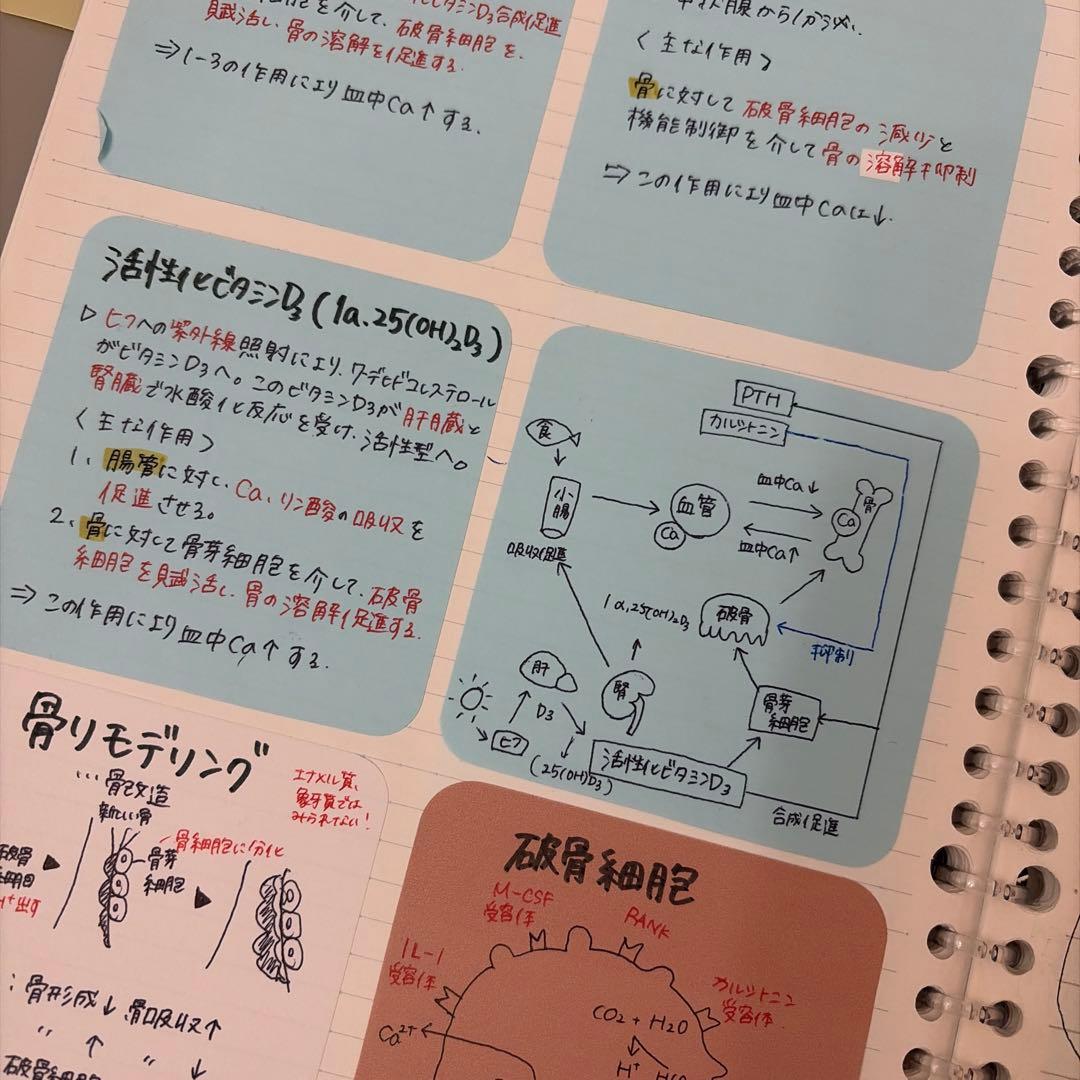 ビタミンD₃合成促進
胞を介して、破骨細胞を
賦活し、骨の溶解を促進する。
⇒1-3の作用により血中Ca↑する。
腺から分泌。
〈主な作用〉
骨に対して破骨細胞の減少と
機能制御を介して骨の溶解抑制
⇒この作用により血中Caは↓.
活性化ビタミンD₃(1α.25(OH)₂D₃)
▷ヒフへの紫外線照射により、7デヒドコレステロール
がビタミンD₃へ。このビタミンD₃が肝臓と
腎臓で水酸化反応を受け、活性型へ。
〈主な作用〉
1、腸管に対し、Ca、リン酸の吸収を
促進させる。
2、骨に対して骨芽細胞を介して、破骨
細胞を賦活し、骨の溶解促進する。
⇒この作用により血中Ca↑する。
PTH
カルシトニン
食
小腸
吸収促進
血管
Ca
血中Ca↓
血中Ca↑
骨
Ca
1α,25(OH)₂D₃
破骨
抑制
肝
腎
D₃
ヒフ
(25(OH)D₃)
骨芽
細胞
活性化ビタミンD₃
合成促進
骨リモデリング
…骨改造
エナメル質、
象牙質では
みられない!
新しい骨
骨細胞に分化
破骨
細胞
H⁺出す
骨芽
細胞
:骨形成↓ 骨吸収↑
〃 ↑ 〃 ↓
破骨細胞
破骨細胞
M-CSF
受容体
RANK
IL-1
受容体
カルシトニン
受容体
Ca²⁺
CO₂+H₂O
H⁺